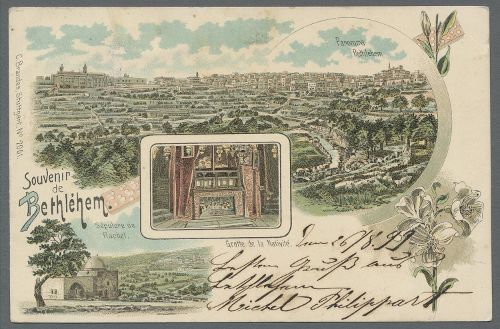 Panorama
Bethléhem
C. Brandes, Stuttgart, No 2061.
Souvenir
de
Bethléhem.
Sépulcre de
Rachel.
Grotte de la Nativité.
26/8.99
Gruß aus
Bethlehem
Michel Philippart